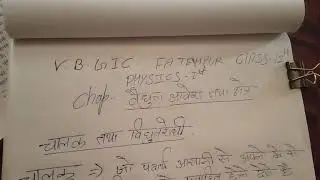 V.B.G.I.C. FATEHPUR CLASS-12th
PHYSICS-Ist
Chap- वैद्युत आवेश तथा क्षेत्र
चालक तथा विद्युतरोधी
चालक ⇒ जो पदार्थ आसानी से अपने